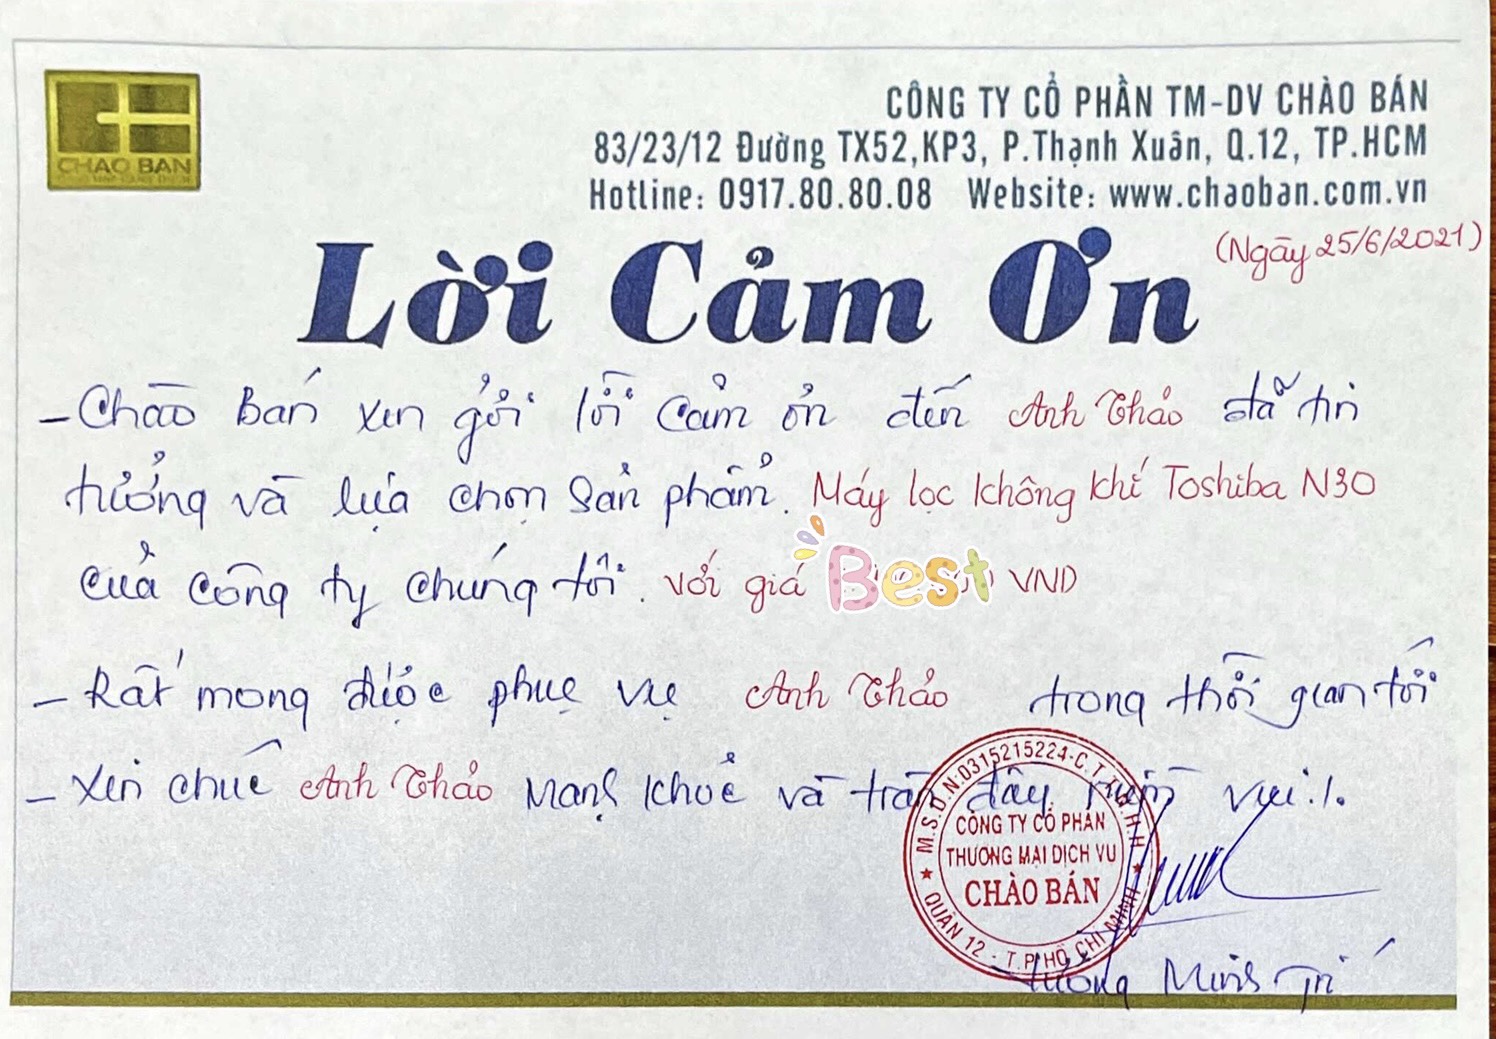 CHAO BAN
CÔNG TY CỔ PHẦN TM-DV CHÀO BÁN
83/23/12 Đường TX52,KP3, P.Thạnh Xuân, Q.12, TP.HCM
Hotline: 0917.80.80.08 Website: www.chaoban.com.vn
(Ngày 25/6/2021)
Lời Cảm Ơn
- Chào Bán xin gửi lời cảm ơn đến Anh Thảo đã tin
tưởng và lựa chọn sản phẩm. Máy lọc không khí Toshiba N30
của công ty chúng tôi. với giá Best VND
- Rất mong được phục vụ Anh Thảo trong thời gian tới
- Xin chúc Anh Thảo mạnh khoẻ và tràn đầy niềm vui./.
M.S.D.N:0315215224-C.T.T.N.H.H
CÔNG TY CỔ PHẦN
THƯƠNG MẠI DỊCH VỤ
CHÀO BÁN
QUẬN 12 - T.P HỒ CHÍ MINH
Minh Trí